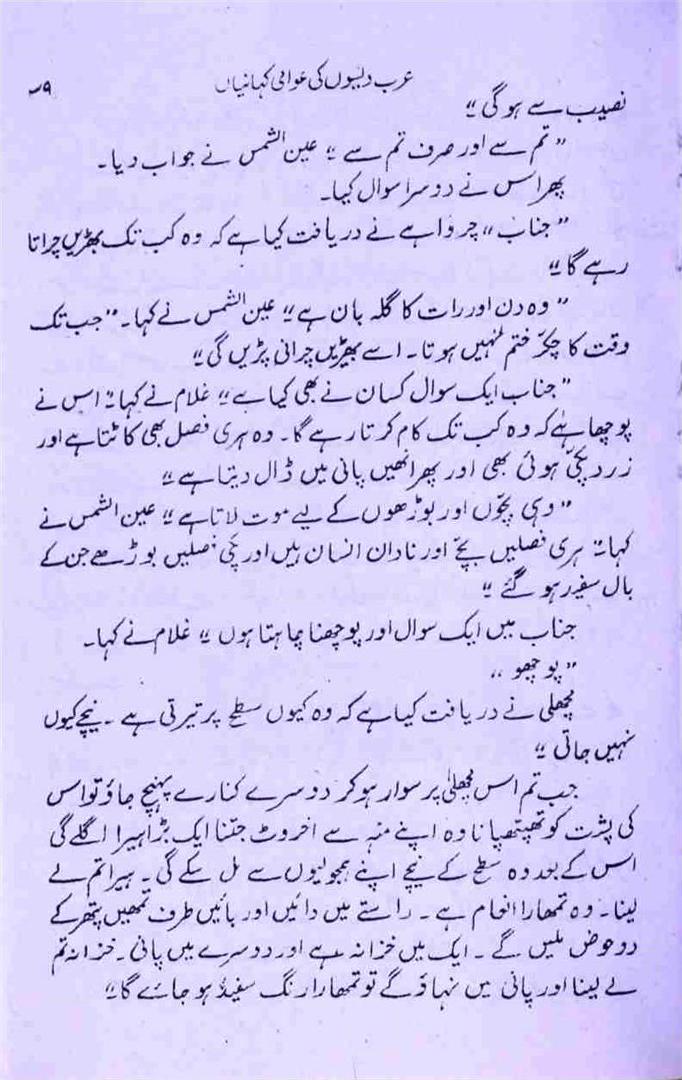 عرب دیسوں کی عوامی کہانیاں ۳۹
نصیب سے ہوگی"
"تم سے اور صرف تم سے" عین الشمس نے جواب دیا۔
پھر اس نے دوسرا سوال کیا۔
"جناب" چرواہے نے دریافت کیا ہے کہ وہ کب تک بھیڑیں چراتا
رہے گا"
"وہ دن اور رات کا گلہ بان ہے" عین الشمس نے کہا۔ "جب تک
وقت کا چکر ختم نہیں ہوتا۔ اسے بھیڑیں چرانی پڑیں گی"
"جناب ایک سوال کسان نے بھی کیا ہے" غلام نے کہا" اس نے
پوچھا ہے کہ وہ کب تک کام کرتا رہے گا۔ وہ ہری فصل بھی کاٹتا ہے اور
زرد پکی ہوئی بھی اور پھر انھیں پانی میں ڈال دیتا ہے"
"وہی بچّوں اور بوڑھوں کے لیے موت لاتا ہے" عین الشمس نے
کہا" ہری فصلیں بچّے اور نادان انسان ہیں اور پکی فصلیں بوڑھے جن کے
بال سفید ہو گئے"
جناب میں ایک سوال اور پوچھنا چاہتا ہوں" غلام نے کہا۔
"پوچھو"
مچھلی نے دریافت کیا ہے کہ وہ کیوں سطح پر تیرتی ہے۔ نیچے کیوں
نہیں جاتی"
جب تم اس مچھلی پر سوار ہو کر دوسرے کنارے پہنچ جاؤ تو اس
کی پشت کو تھپتھپانا وہ اپنے منہ سے اخروٹ جتنا ایک بڑا ہیرا اگلے گی
اس کے بعد وہ سطح کے نیچے اپنے ہمجولیوں سے مل سکے گی۔ ہیرا تم لے
لینا۔ وہ تمھارا انعام ہے۔ راستے میں دائیں اور بائیں طرف تمھیں پتھر کے
دو حوض ملیں گے۔ ایک میں خزانہ ہے اور دوسرے میں پانی۔ خزانہ تم
لے لینا اور پانی میں نہاؤ گے تو تمھارا رنگ سفید ہو جائے گا"